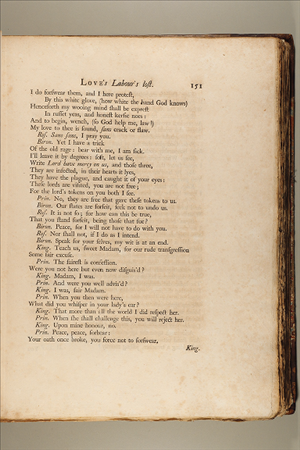 LOVE's Labour's lost. 151
I do forswear them, and I here protest,
By this white glove, (how white the hand God knows)
Henceforth my wooing mind shall be exprest
In russet yeas, and honest kersie noes:
And to begin, wench, (so God help me, law!)
My love to thee is sound, sans crack or flaw.
Ros. Sans sans, I pray you.
Biron. Yet I have a trick
Of the old rage: bear with me, I am sick.
I'll leave it by degrees: soft, let us see,
Write Lord have mercy on us, on those three,
They are infected, in their hearts it lyes,
They have the plague, and caught it of your eyes:
These lords are visited, you are not free;
For the lord's tokens on you both I see.
Prin. No, they are free that gave these tokens to us.
Biron. Our states are forfeit, seek not to undo us.
Ros. It is not so; for how can this be true,
That you stand forfeit, being those that sue?
Biron. Peace, for I will not have to do with you.
Ros. Nor shall not, if I do as I intend.
Biron. Speak for your selves, my wit is at an end.
King. Teach us, sweet Madam, for our rude transgression
Some fair excuse.
Prin. The fairest is confession.
Were you not here but even now disguis'd?
King. Madam, I was.
Prin. And were you well advis'd?
King. I was, fair Madam.
Prin. When you then were here,
What did you whisper in your lady's ear?
King. That more than all the world I did respect her.
Prin. When she shall challenge this, you will reject her.
King. Upon mine honour, no.
Prin. Peace, peace, forbear:
Your oath once broke, you force not to forswear.
King.